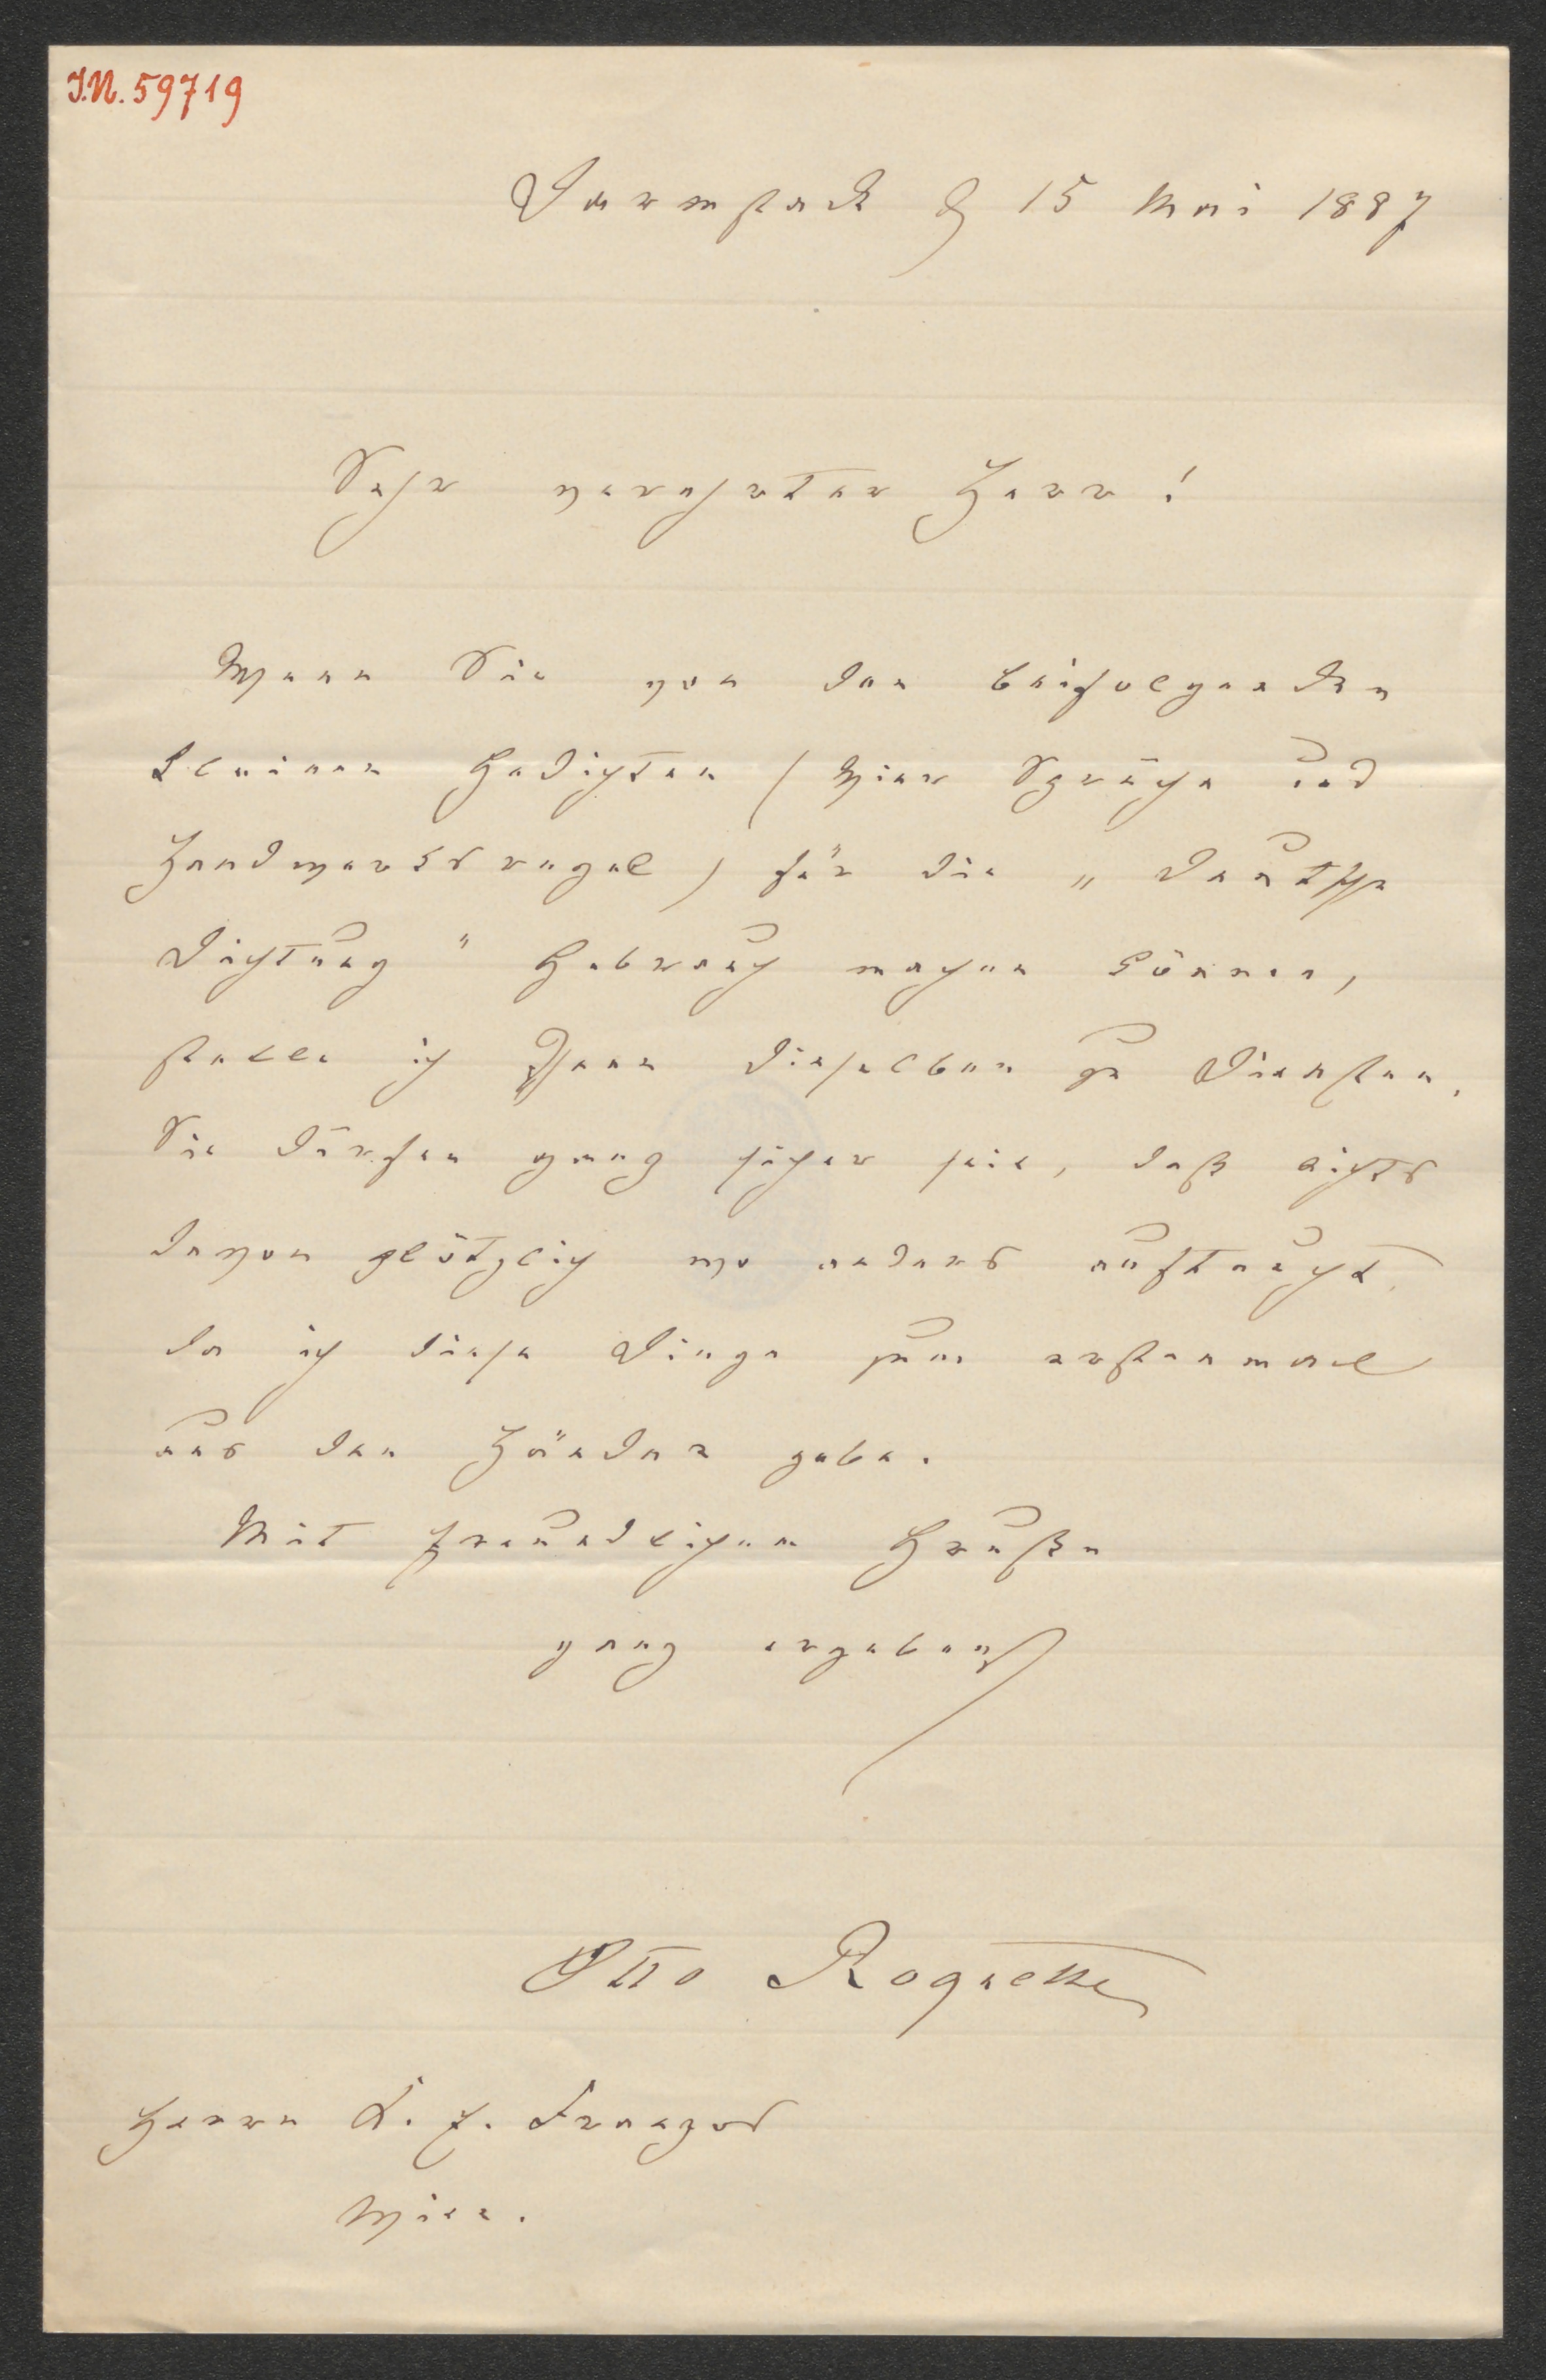 J.N. 59719
Darmstadt d 15 Mai 1887
Sehr verehrter Herr!
Wenn Sie von den beifolgenden
kleinen Gedichten (Vier Sprüche und
Handwerksregel) für die „Deutsche
Dichtung" Gebrauch machen können,
stelle ich Ihnen dieselben zu Diensten.
Sie dürfen ganz sicher sein, daß nichts
davon plötzlich wo anders auftaucht,
da ich diese Dinge zum erstenmal
aus den Händen gebe.
Mit freundlichem Gruße
ganz ergebenst
Otto Roquette
Herrn K. E. Franzos
Wien.